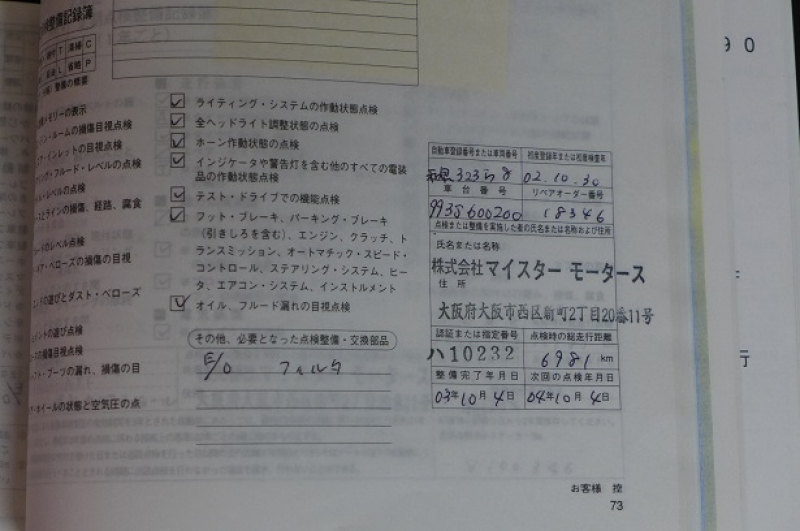 検整備記録簿
90
締付 T 清掃 C
L 省略 P
整備の概要
メモリーの表示
ルームの損傷目視点検
インレットの目視点検
フルード・レベルの点検
レベルの点検
とラインの損傷、経路、腐食
のレベル点検
ベローズの損傷の目視
ンドの遊びとダスト・ベローズ
イントの遊び点検
の損傷目視点検
ト・ブーツの漏れ、損傷の目
ホイールの状態と空気圧の点
ライティング・システムの作動状態点検
全ヘッドライト調整状態の点検
ホーン作動状態の点検
インジケータや警告灯を含む他のすべての電装
品の作動状態点検
テスト・ドライブでの機能点検
フット・ブレーキ、パーキング・ブレーキ
(引きしろを含む)、エンジン、クラッチ、ト
ランスミッション、オートマチック・スピード・
コントロール、ステアリング・システム、ヒー
タ、エアコン・システム、インストルメント
オイル、フルード漏れの目視点検
その他、必要となった点検整備・交換部品
E/O フィルタ
自動車登録番号または車両番号 初度登録年または初度検査年
323ら8 02.10.30
車台番号 リペアオーダー番号
993S600200 18346
点検または整備を実施した者の氏名または名称および住所
氏名または名称
株式会社マイスター モータース
住所
大阪府大阪市西区新町2丁目20番11号
認証または指定番号 点検時の総走行距離
ハ10232 6981 km
整備完了年月日 次回の点検年月日
03年10月4日 04年10月4日
お客様 控
73